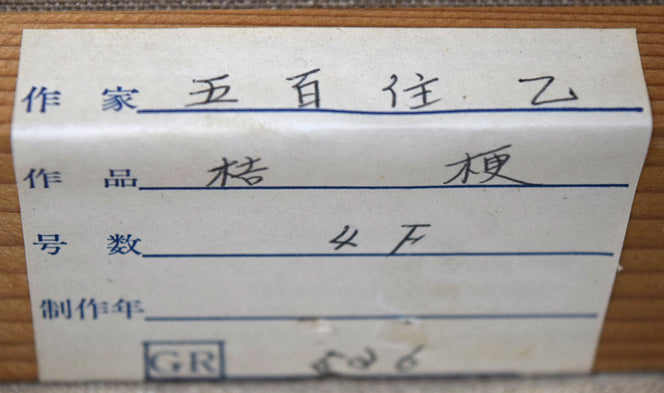 作家 五百住乙
作品 桔梗
号数 4F
制作年
GR 526